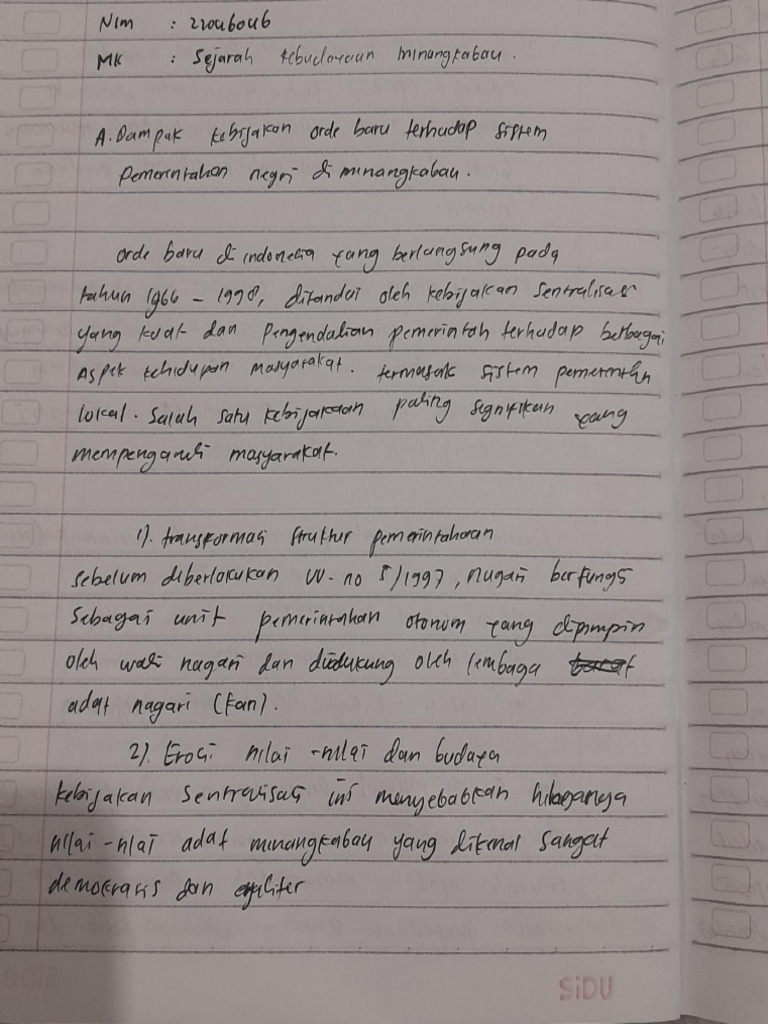 Nim : 22046046
MK : Sejarah kebudayaan minangkabau.
A. Dampak kebijakan orde baru terhadap sistem
Pemerintahan negri di minangkabau.
orde baru di indonesia yang berlangsung pada
tahun 1966 - 1998, ditandai oleh kebijakan sentralisasi
yang kuat dan Pengendalian pemerintah terhadap berbagai
Aspek kehidupan masyarakat. termasuk sistem pemerintahn
lokal. Salah satu kebijakaan paling signifikan yang
mempengaruhi masyarakat.
1). transformasi struktur pemerintahaan
sebelum diberlakukan UU. no 5/1997, nagari berfungsi
Sebagai unit pemerintahan otonom yang dipimpin
oleh wali nagari dan didukung oleh lembaga
adat nagari (Kan).
2). Erosi nilai -nilai dan budaya
kebijakan sentralisasi ini menyebabkan hilangnya
nilai -nlai adat minangkabau yang dikenal sangat
demokratis dan egaliter
SiDU